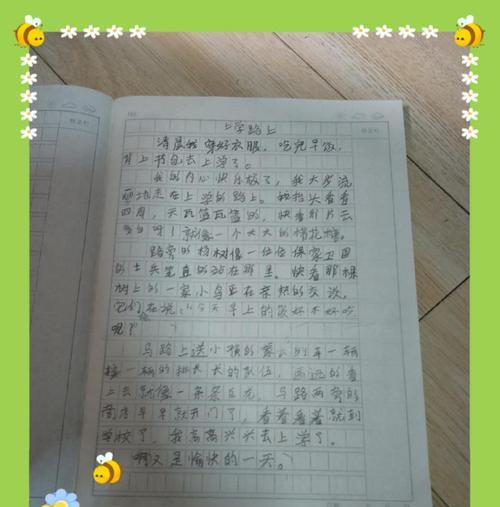 上学路上
清晨我穿好衣服,吃完早饭,
背上书包去上学了。
我的内心快乐极了,我大步流
在上学的路上。抬头看看
四周,天瓦蓝瓦蓝的,快看那片云
呀!就像一个大大的棉花糖。
路旁的杨树像一位位保家卫国
的士兵笔直的站在那里。快看那棵
树上的一家小鸟正在亲热的交谈,
它们在说今天早上的饭好不好吃
呢?
马路上送小孩的车一辆
接一辆的排长长的队伍,远远的看
去就像一条条巨龙。马路两旁的
商店早早就开门了,看着看着就到
学校了,我高高兴兴去上学了。
啊又是愉快的一天。